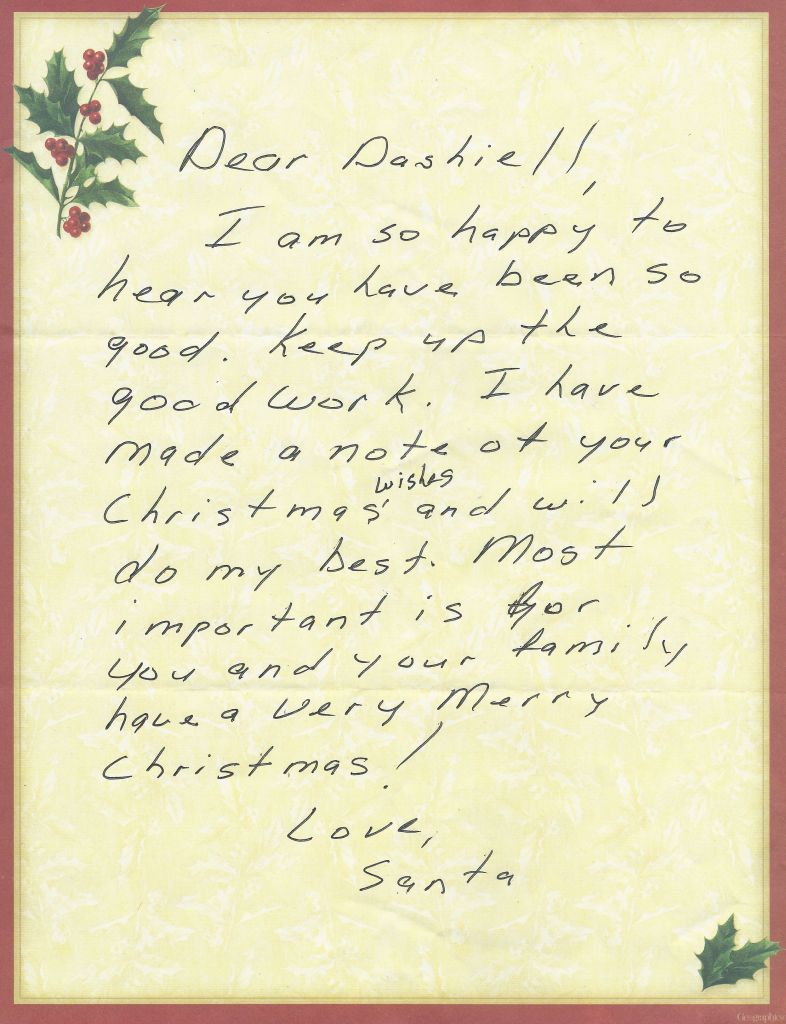 Dear Dashiell,
I am so happy to
hear you have been so
good. Keep up the
good work. I have
made a note of your
Christmas wishes and will
do my best. Most
important is for
you and your family
have a very Merry
Christmas!
Love,
Santa
Geographics